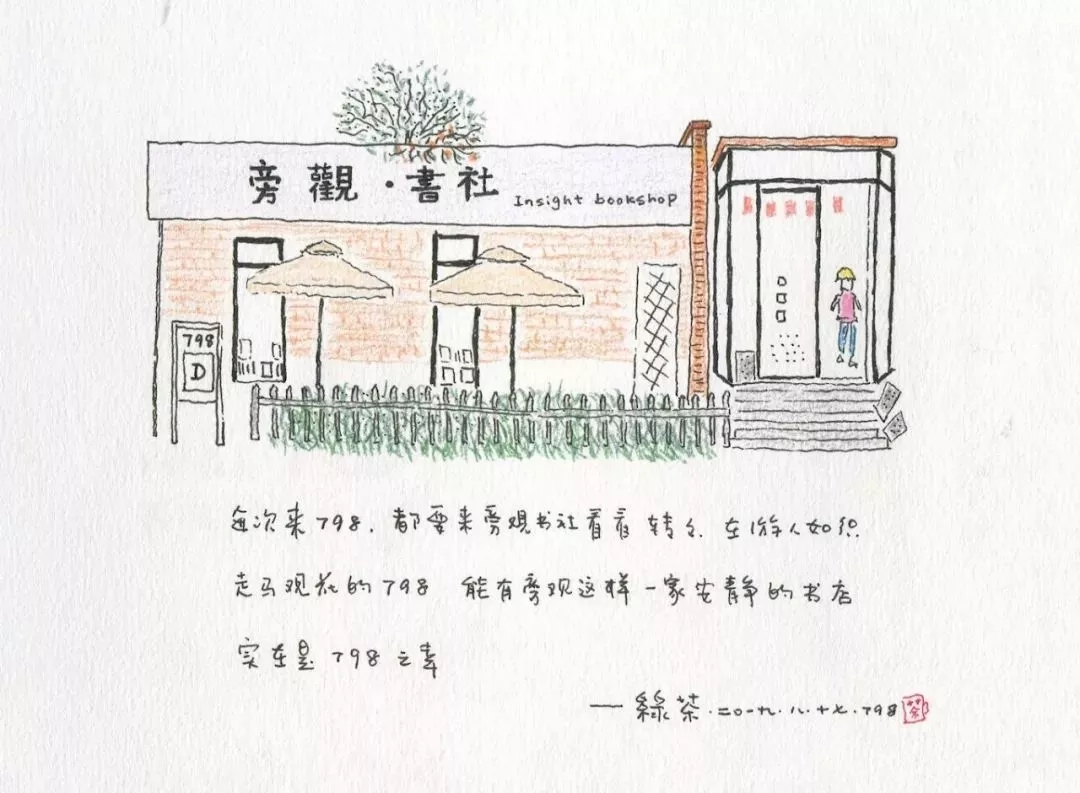 旁觀·書社 Insight bookshop
798
D
每次来798，都要来旁观书社看看 转转，在游人如织
走马观花的798 能有旁观这样一家安静的书店
实在是 798 之幸
— 綠茶·二〇一九·八·十七·798
茶